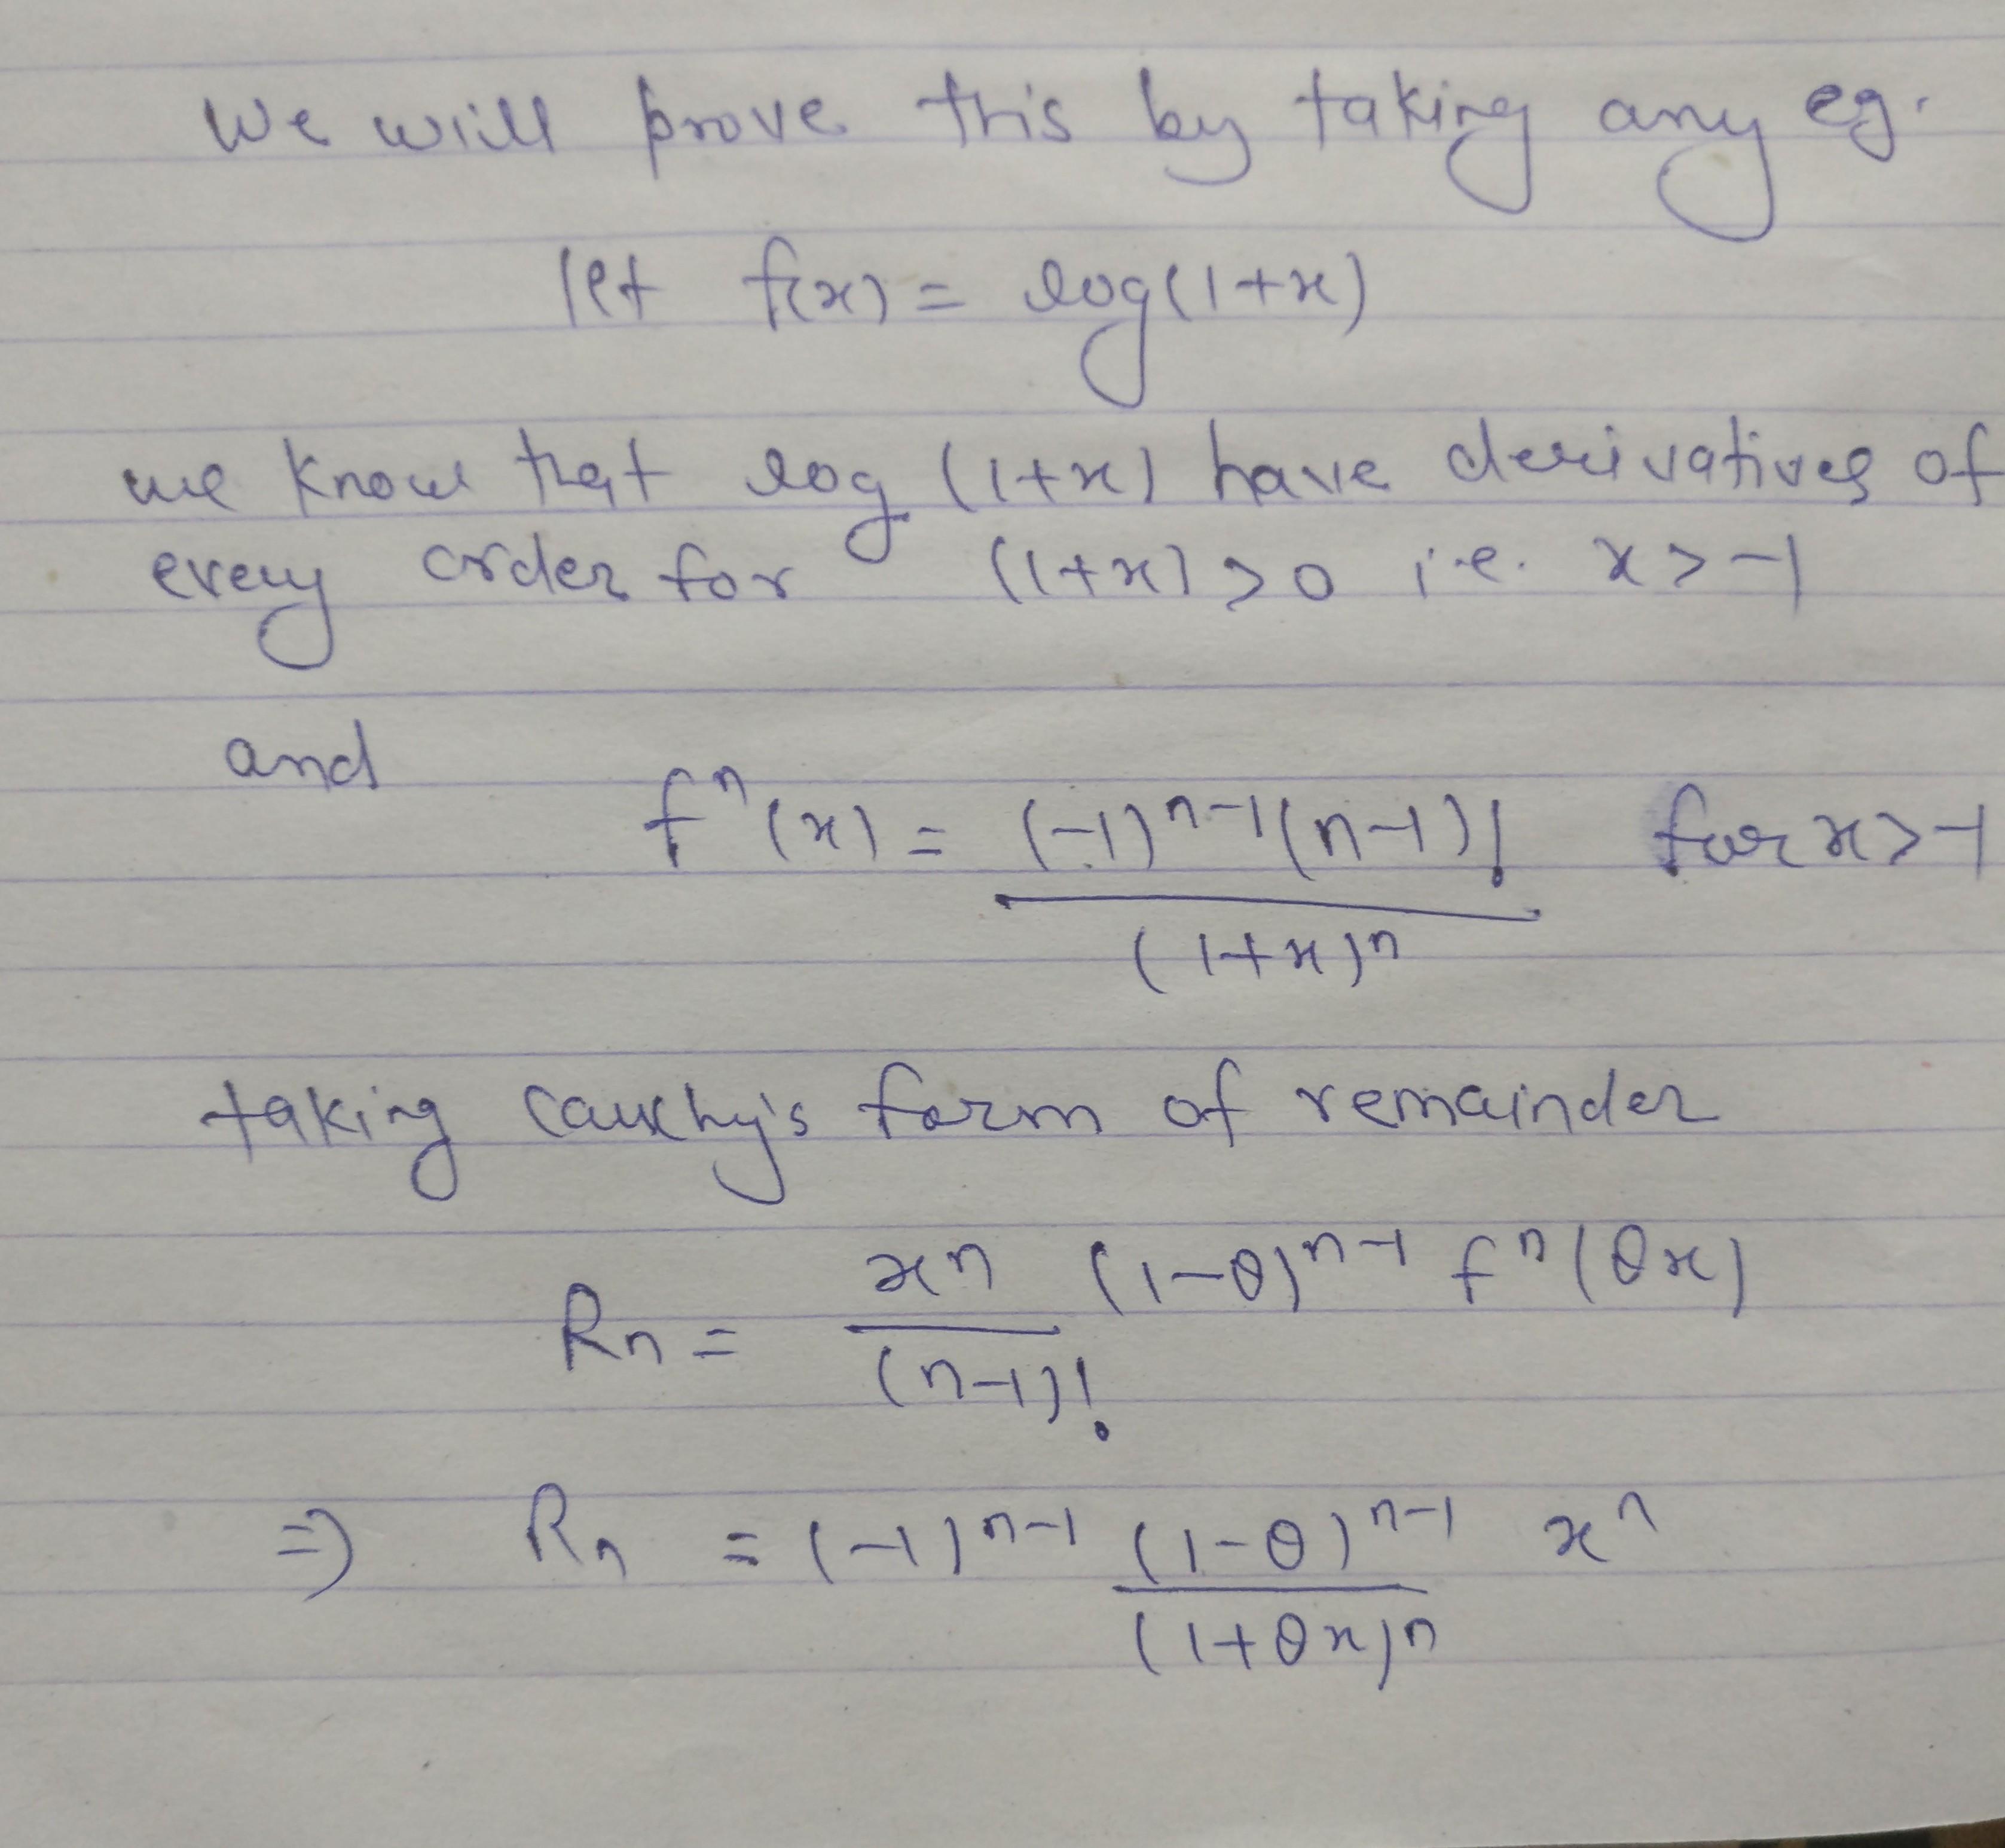 We will prove this by taking any eg.
let f(x) = log(1+x)
we know that log (1+x) have derivatives of
every order for (1+x) > 0 i.e. x > -1
and
fⁿ(x) = (-1)ⁿ⁻¹(n-1)! / (1+x)ⁿ for x > -1
taking cauchy's form of remainder
Rn = xⁿ / (n-1)! (1-θ)ⁿ⁻¹ fⁿ(θx)
⇒ Rn = (-1)ⁿ⁻¹ (1-θ)ⁿ⁻¹ / (1+θx)ⁿ xⁿ